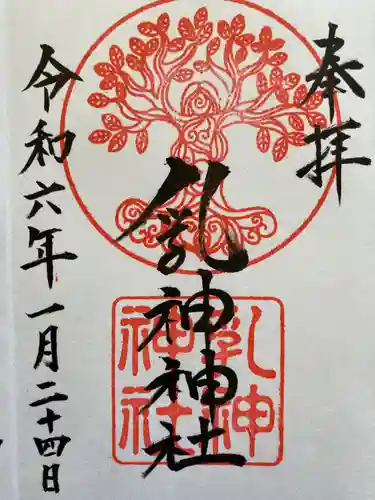 奉拝
乳神神社
乳神
神社
令和六年一月二十四日